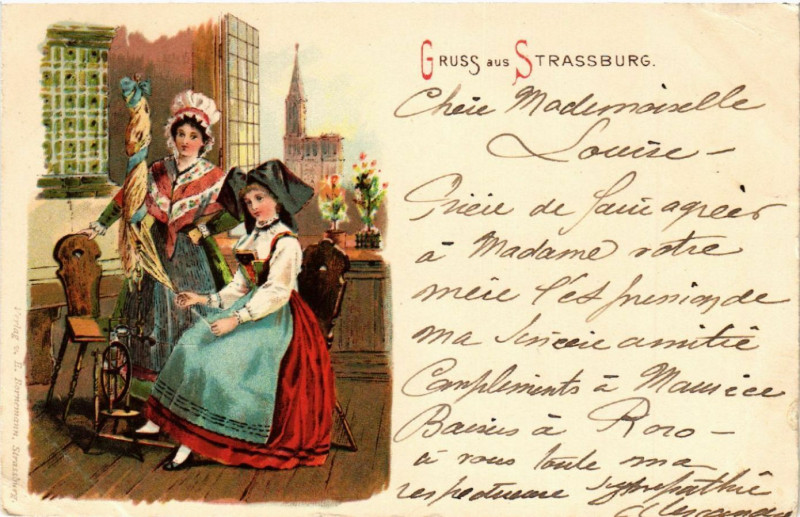 GRUSS aus STRASSBURG.
Chère Mademoiselle
Louise –
Prière de faire agréer
à Madame votre
mère l'expression de
ma sincère amitié
Compliments à Maurice
Baisers à Roro –
à vous toute ma
respectueuse sympathie
Verlag v. E. Bornemann, Strassburg.